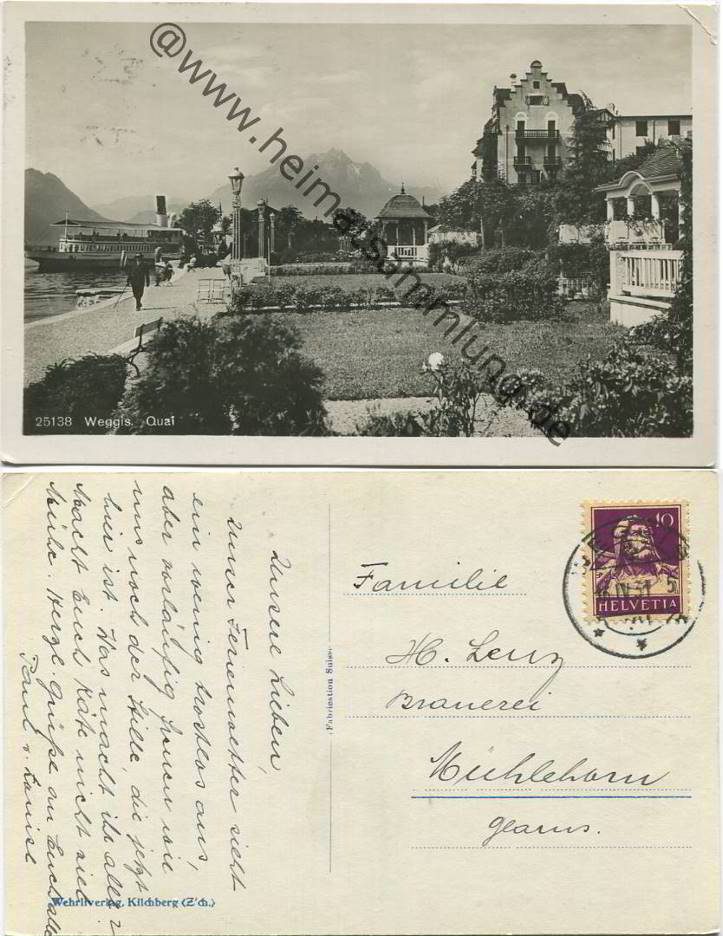 @www.heimat-sammlung.de
25138 Weggis. Quai
Unsere Lieben,
Unser Ferienwetter sieht
ein wenig trostlos aus,
aber vorläufig freuen wir
uns noch der Stille, die jetzt
hier ist. Was macht ihr alle?
Macht Euch Käte nicht viel
Mühe. Herzl. Grüße an Euch alle
Paul u.
Fabrication Suisse
Wehrliverlag, Kilchberg (Z'ch.)
10
HELVETIA
Familie
H. Lenz
Brauerei
Mühlehorn
Glarus.